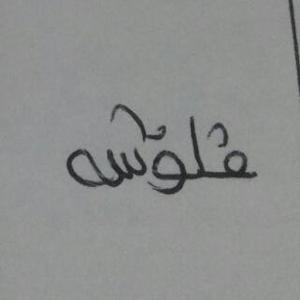 قلوشه